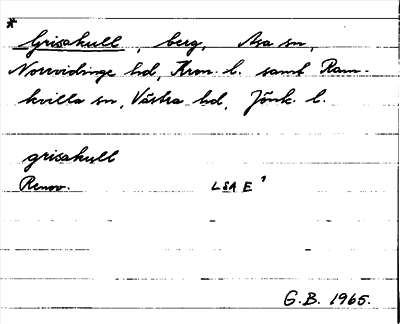 *
Grisakull, berg, Asa sn,
Norrvidinge hd, Kron. l. samt Ram-
kvilla sn, Västra hd, Jönk. l.
grisakull
Renov. LSA E¹
G.B. 1965.